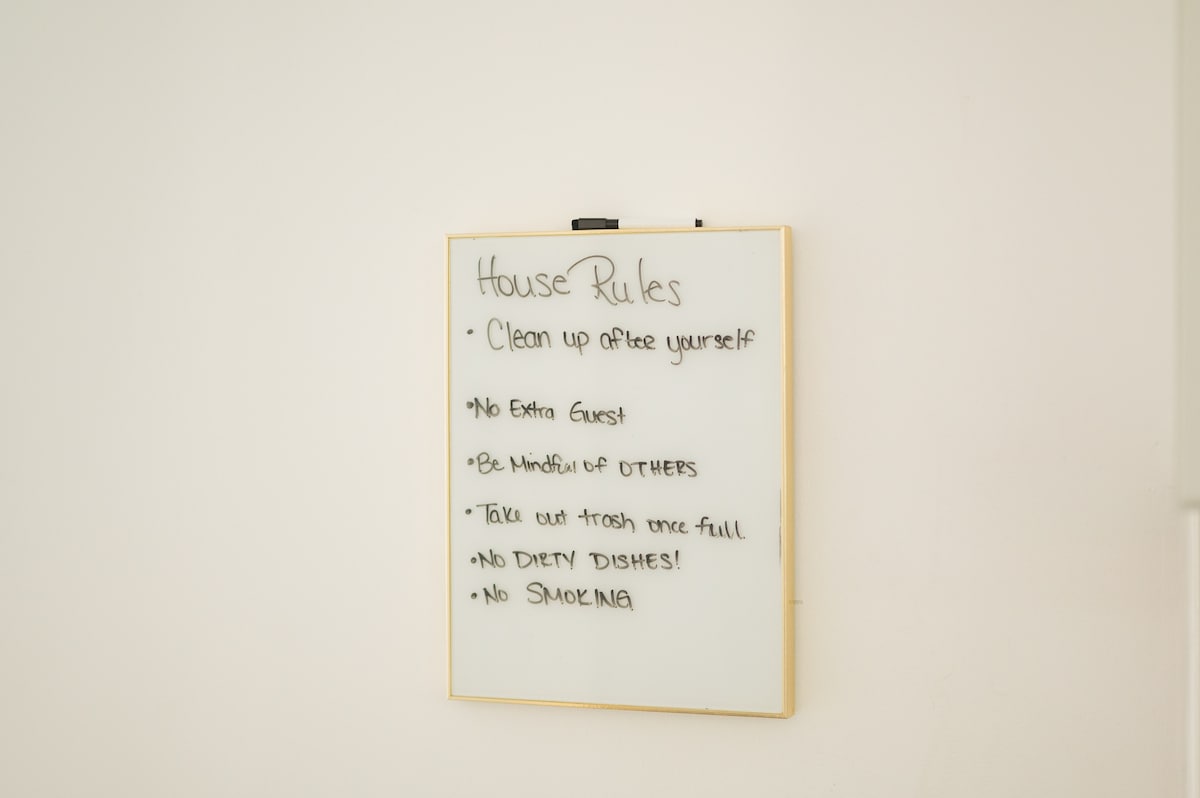 House Rules
• Clean up after yourself
• No Extra Guest
• Be Mindful of OTHERS
• Take out trash once full.
• NO DIRTY DISHES!
• NO SMOKING